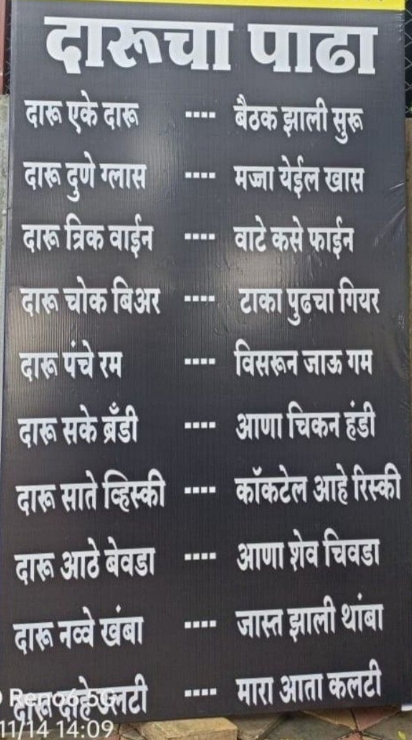 दारूचा पाढा
दारू एके दारू ---- बैठक झाली सुरू
दारू दुणे ग्लास ---- मज्जा येईल खास
दारू त्रिक वाईन ---- वाटे कसे फाईन
दारू चोक बिअर ---- टाका पुढचा गियर
दारू पंचे रम ---- विसरून जाऊ गम
दारू सके ब्रँडी ---- आणा चिकन हंडी
दारू साते व्हिस्की ---- कॉकटेल आहे रिस्की
दारू आठे बेवडा ---- आणा शेव चिवडा
दारू नव्वे खंबा ---- जास्त झाली थांबा
दारू दाहे उलटी ---- मारा आता कलटी
Reno6 5G
11/14 14:09